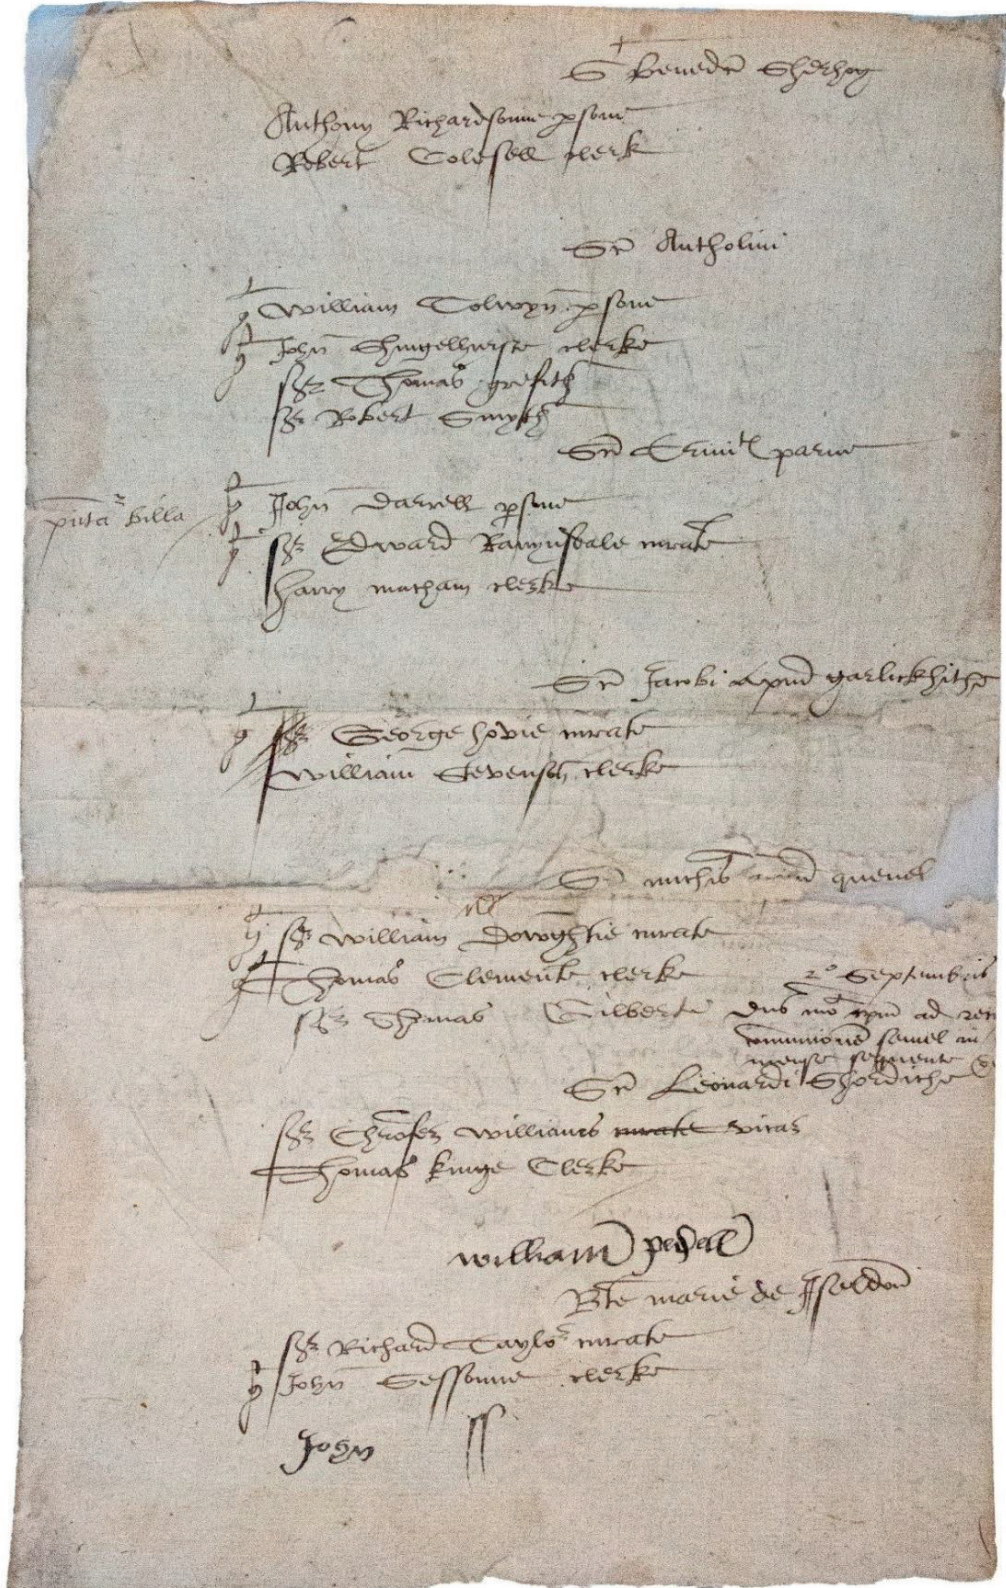 S Benedc Sherhog
Anthony Richardsonne psone
Robert Colesell clerk
Sci Antholini
William Tolwyn psone
John Shingelhurste clerke
Sr Thomas Grefith
Sr Robert Smyth
Sce Trinit parve
John Darrell psone
pntat billa
Sr Edward curate
Harry matham clerke
Sci Jacobi apud garlickhithe
Sr George hovie curate
William Stevenson clerke
Sci michis quenel
Sr William Dowghtie curate
Thomas Clemente clerke
2o Septembris
Sr Thomas Gilberte Dns ad
communione semel in
mense sequente
Sci Leonardi Shordiche
Sr Chrofer Williams curate vicar
Thomas kinge Clerke
william pedell
Bte marie de Iseldon
Sr Richard Taylor curate
John Sessonne clerke
John